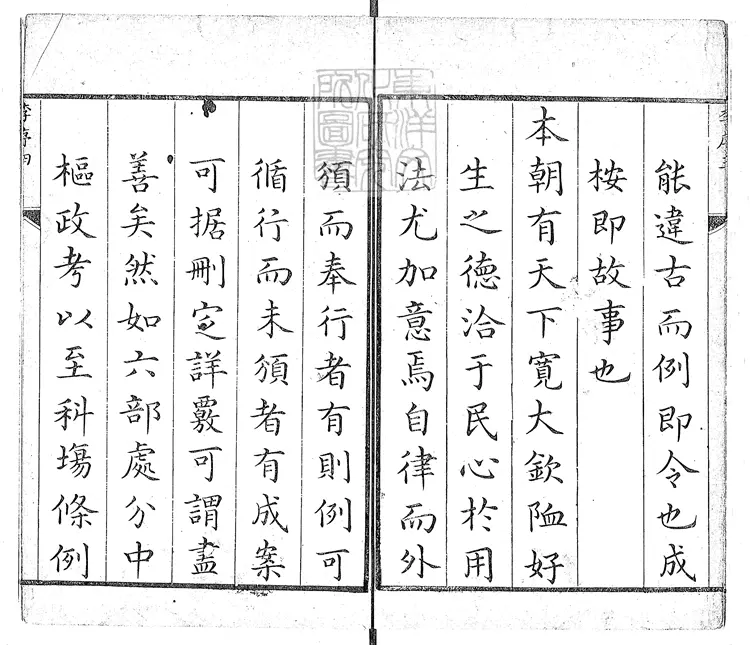 能違古而例即令也成
桉即故事也
本朝有天下寬大欽恤好
生之德洽于民心於用
法尤加意焉自律而外
頒而奉行者有則例可
循行而未頒者有成案
可据刪定詳覈可謂盡
善矣然如六部處分中
樞政考以至科場條例